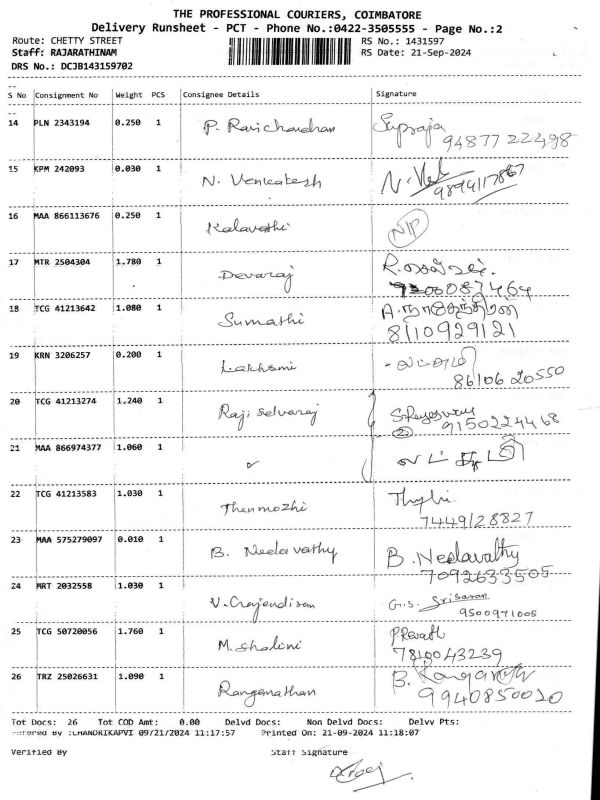 THE PROFESSIONAL COURIERS, COIMBATORE
Delivery Runsheet - PCT - Phone No.:0422-3505555 - Page No.:2
Route: CHETTY STREET RS No.: 1431597
Staff: RAJARATHINAM RS Date: 21-Sep-2024
DRS No.: DCJB143159702
S No Consignment No Weight PCS Consignee Details Signature
14 PLN 2343194 0.250 1 P. Ravichandran Supraja
94877 22498
15 KPM 242093 0.030 1 N. Venkatesh
9894117867
16 MAA 866113676 0.250 1 Kalavathi N/P
17 MTR 2504304 1.780 1 Devaraj
18 TCG 41213642 1.080 1 Sumathi
8110929121
19 KRN 3206257 0.200 1 Lakhsmi லட்சுமி
86106 20550
20 TCG 41213274 1.240 1 Raji selvaraj
2 9150224468
21 MAA 866974377 1.060 1 "
22 TCG 41213583 1.030 1 Thenmozhi
7449128827
23 MAA 575279097 0.010 1 B. Neelavathy B. Neelavathy
7092633505
24 MRT 2032558 1.030 1 G.S. Srisaran
9500971005
25 TCG 50720056 1.760 1 M. Shalini P. Revath
7810043239
26 TRZ 25026631 1.090 1 Ranganathan B.
9940850020
Tot Docs: 26 Tot COD Amt: 0.00 Delvd Docs: Non Delvd Docs: Delvv Pts:
Entered By :CHANDRIKAPVI 09/21/2024 11:17:57 Printed On: 21-09-2024 11:18:07
Verified By Staff Signature